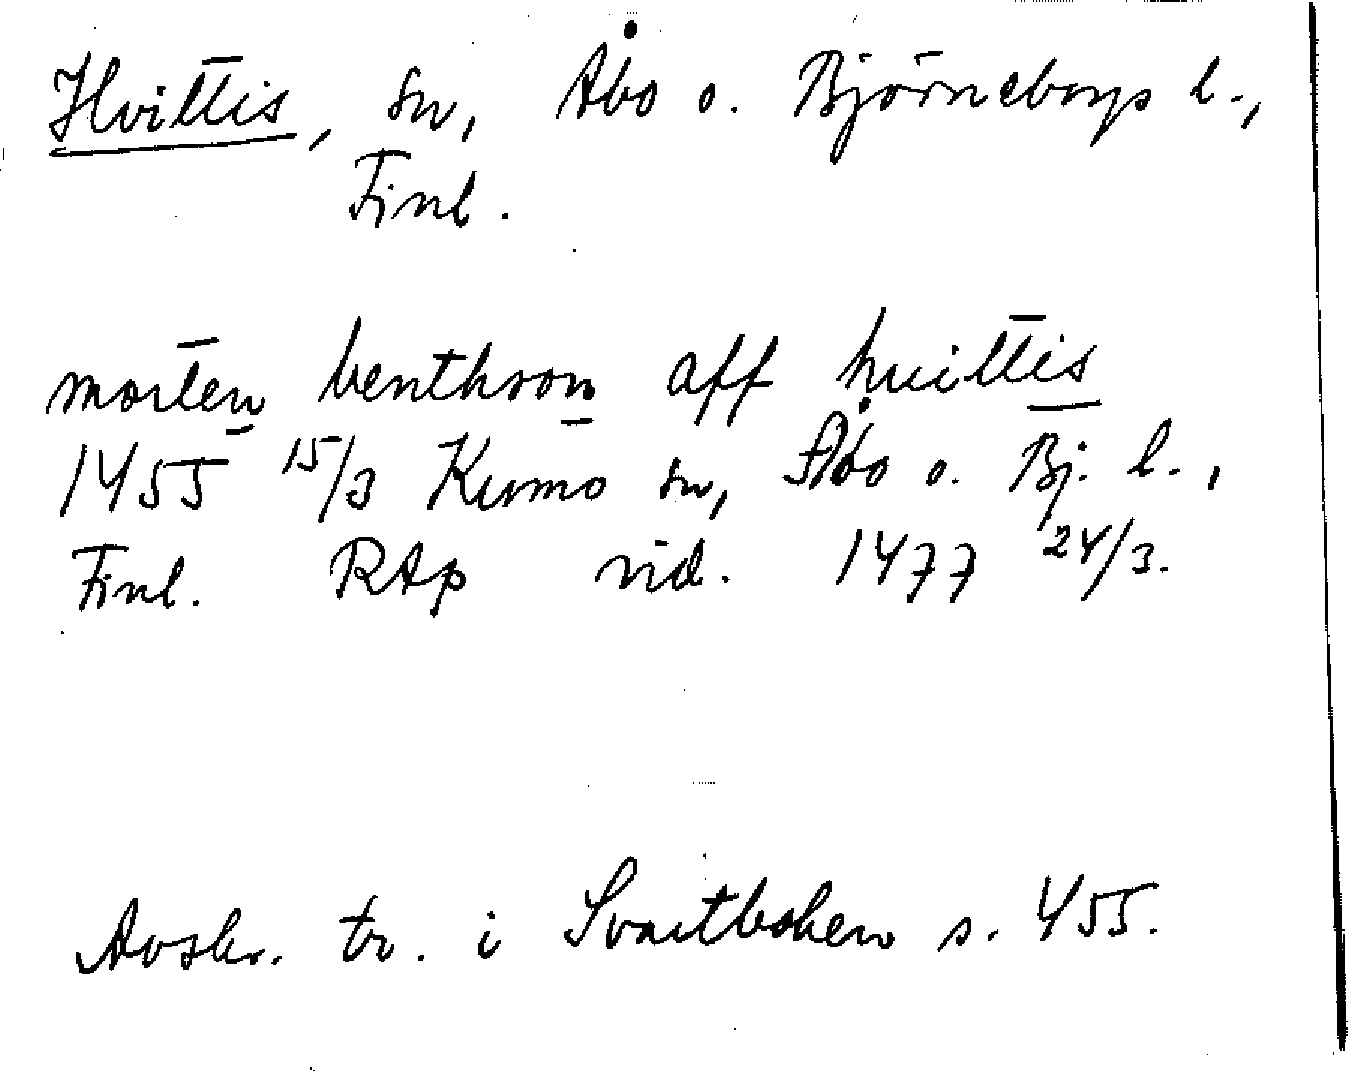 Hvittis, sn, Åbo o. Björneborgs l.,
Finl.
morten benthson aff huittis
1455 15/3 Kumo sn, Åbo o. Bj. l.,
Finl. RAp vid. 1477 24/3.
Avskr. tr. i Svartboken s. 455.